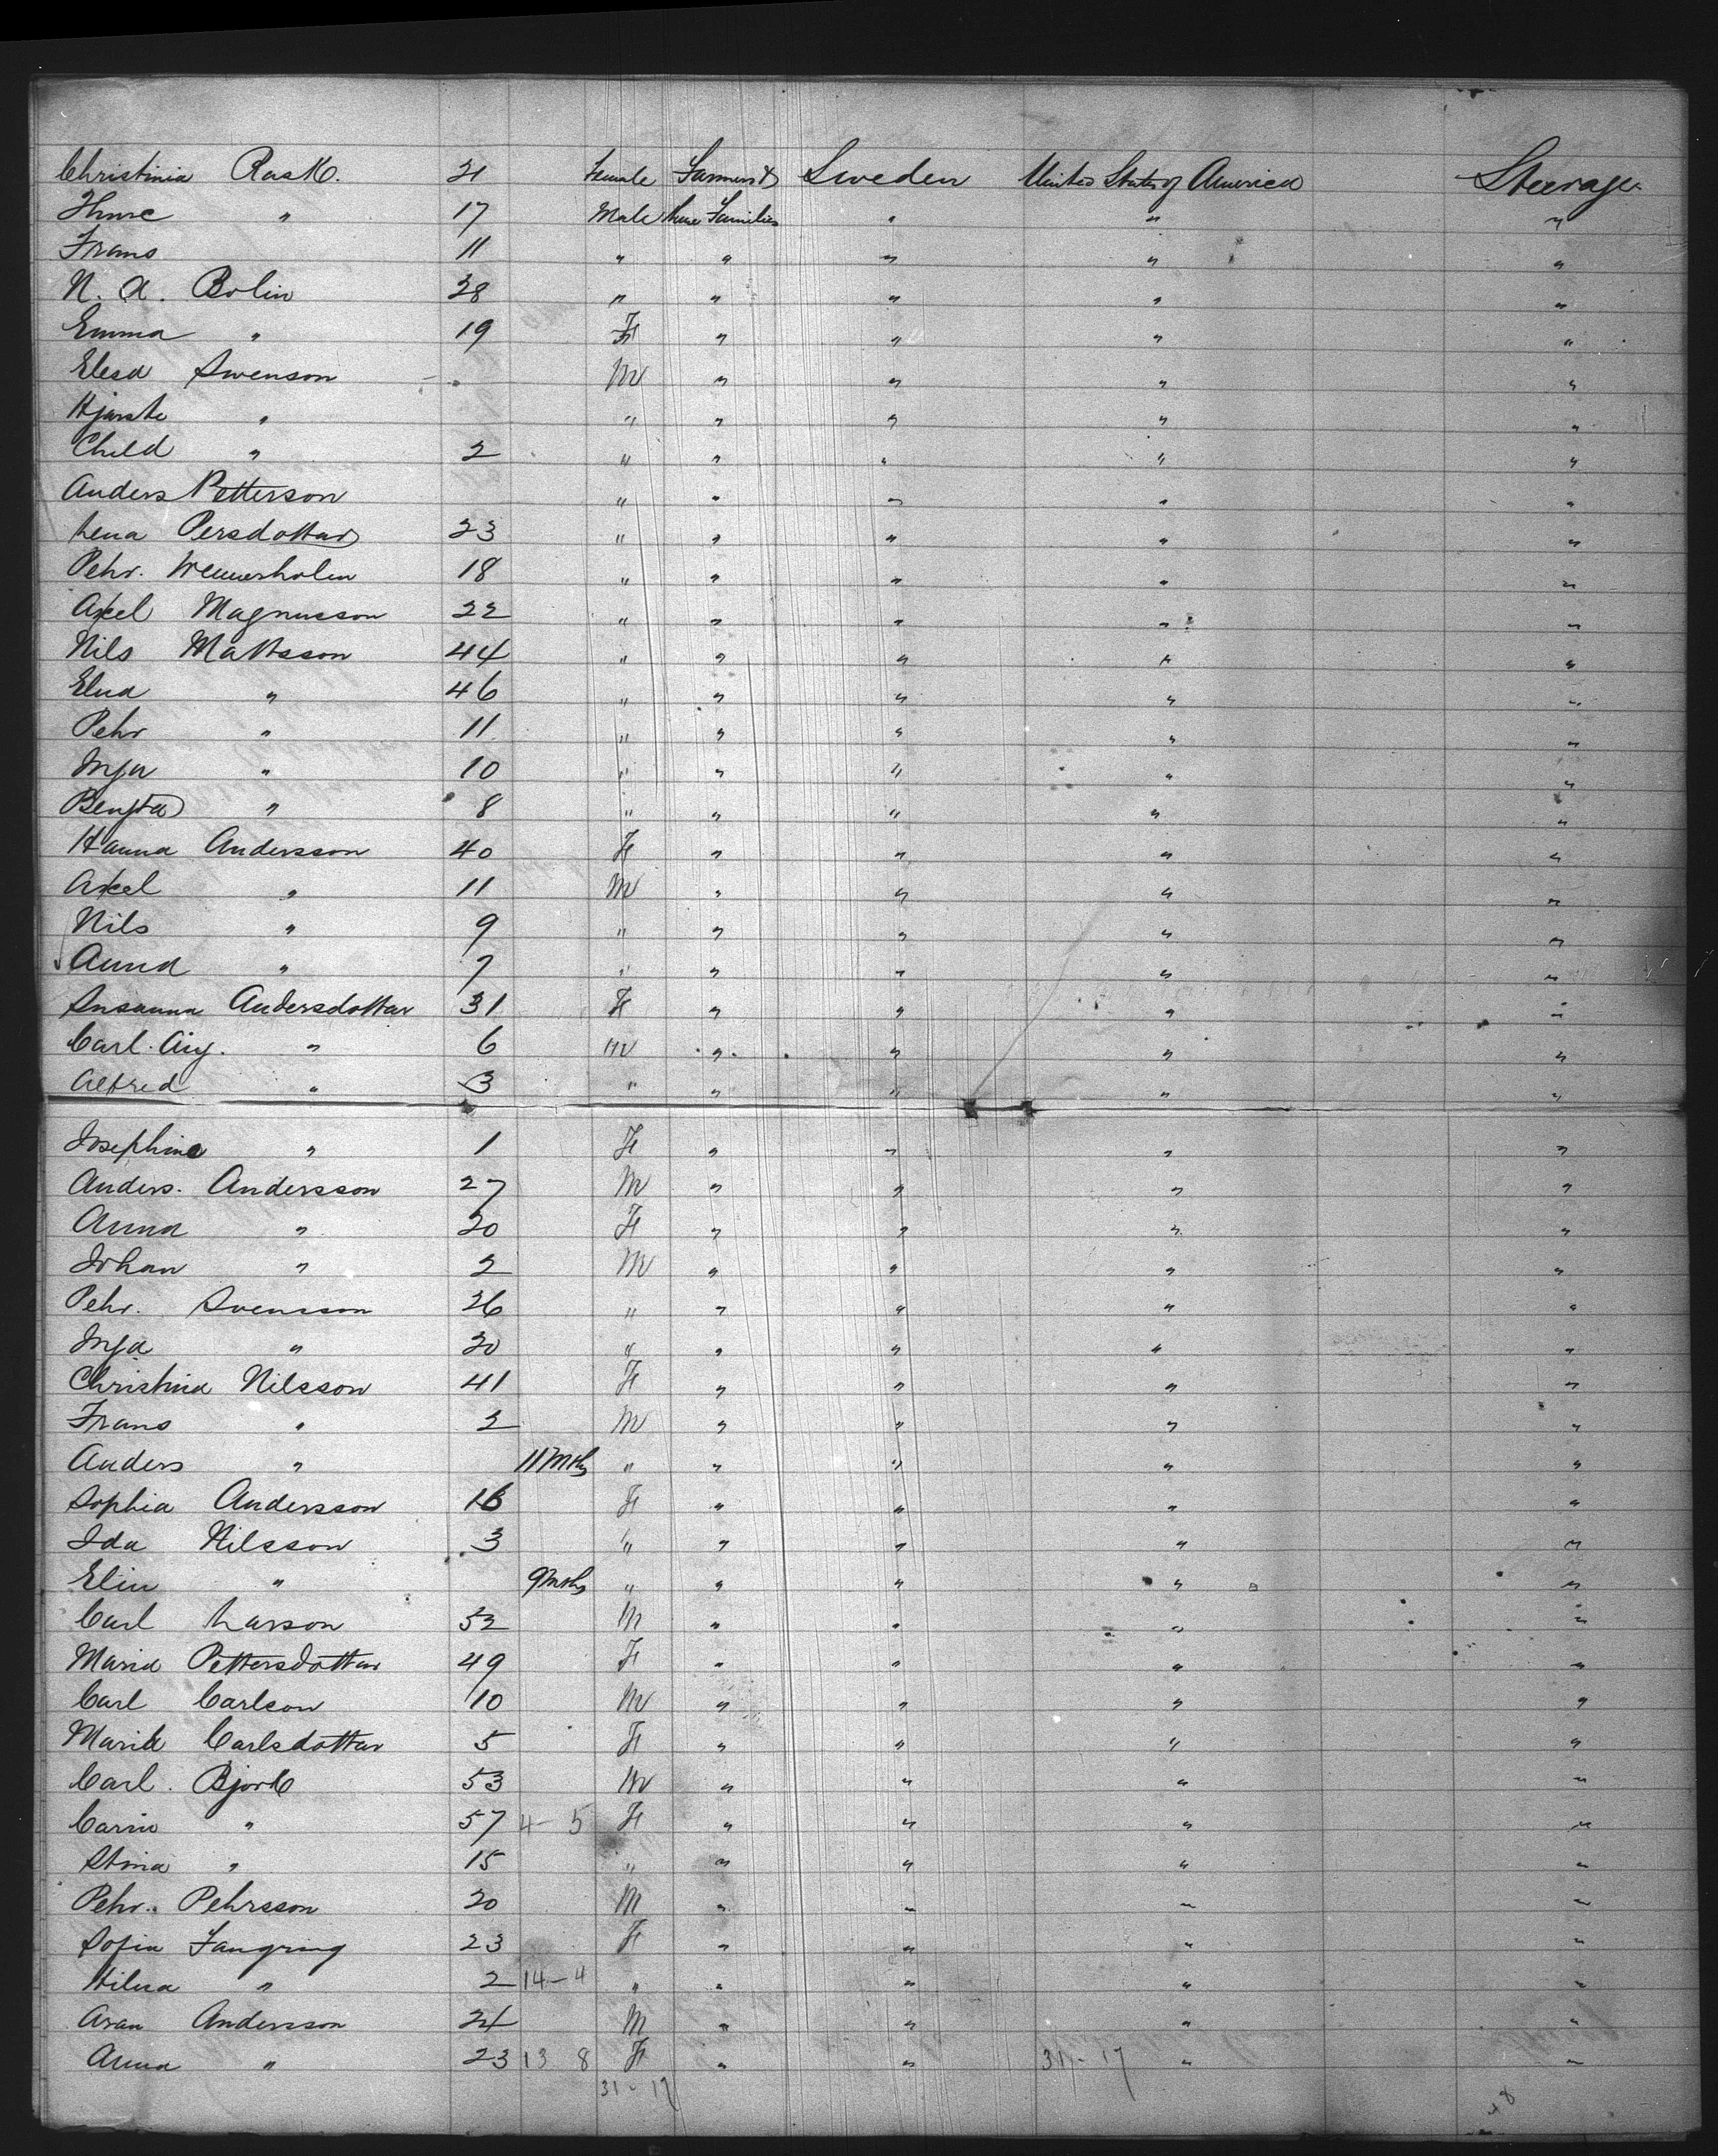 Christinia Rask. 21 Female Farmers & Sweden United States of America Steerage
Thure " 17 Male their Families " " "
Frans 11 " " " " "
N. A. Bolin 28 " " " " "
Emma " 19 F " " " "
Elesa Swenson M " " " "
" " " " " "
Child " 2 " " " " "
Anders Petterson " " " " "
Lena Persdotter 23 " " " " "
Pehr. 18 " " " " "
Axel Magnusson 22 " " " " "
Nils Mattsson 44 " " " " "
Elna " 46 " " " " "
Pehr " 11 " " " " "
Inga " 10 " " " " "
Bengta " 8 " " " " "
Hanna Andersson 40 F " " " "
Axel " 11 M " " " "
Nils " 9 " " " " "
Anna " 7 " " " " "
Susanna Andersdotter 31 F " " " "
Carl. Aug. " 6 M " " " "
Alfred " 3 " " " " "
Josephine " 1 F " " " "
Anders. Andersson 27 M " " " "
Anna " 20 F " " " "
Johan " 2 M " " " "
Pehr. Svensson 26 " " " " "
Inga " 20 " " " " "
Christina Nilsson 41 F " " " "
Frans " 2 M " " " "
Anders " 11 Mths " " " " "
Sophia Andersson 16 F " " " "
Ida Nilsson 3 " " " " "
Elin " 9 Mths " " " " "
Carl Larson 52 M " " " "
Maria Pettersdotter 49 F " " " "
Carl Carlson 10 M " " " "
Maria Carlsdotter 5 F " " " "
Carl. Bjork 53 M " " " "
Carin " 57 4 - 5 F " " " "
Stina " 15 " " " " "
Pehr. Pehrsson 20 M " " " "
Sofia Fangring 23 F " " " "
Hilma " 2 14 - 4 " " " " "
Aran Andersson 24 M " " " "
Anna " 23 13 8 F " " 31 - 17 " "
31 - 17